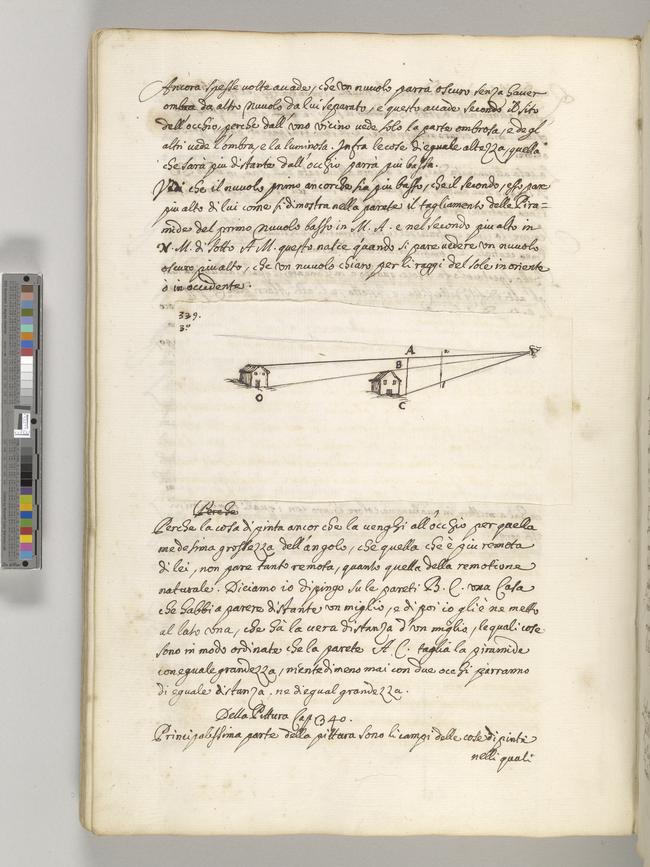 Ancora spesse volte accade, che un nuuolo parrà oscuro senza hauer
ombra da altro nuuolo da lui separato, e questo accade secondo il sito
dell'occhio, perche dall'uno vicino vede solo la parte ombrosa, e degl
altri vede l'ombra, e la luminosa. Infra le cose di equale altezza, quella
che sarà piu distante dall'occhio parrà piu bassa.
Vedi che il nuuolo primo ancorche sia piu basso, che il secondo, esso pare
piu alto di lui come si dimostra nella parete il tagliamento della Pira=
mide del primo nuuolo basso in M. A. e nel secondo piu alto in
N. M. di sotto A M. questo nasce quando si pare uedere un nuuolo
oscuro piu alto, che un nuuolo chiaro per li raggi del sole in oriente
o in occidente.
339.
3.º
A
B
O
C
Perche
Perche la cosa dipinta ancor che la venghi all'occhio per quella
medesima grossezza dell'angolo, che quella che è piu remota
di lei, non pare tanto remota, quanto quella della remotione
naturale. Diciamo io dipingo su le pareti B. C. una Casa
che habbia a parere distante un miglio, e di poi io gli è ne metto
al lato una, che hà la vera distanza d'un miglio, le quali cose
sono in modo ordinate che la parete A C. taglia la piramide
con equale grandezza, nientedimeno mai con due occhi parranno
di equale distanza, ne di equal grandezza.
Della Pittura Cap 340.
Principalissima parte della pittura sono li campi delle cose dipinte
nelli quali